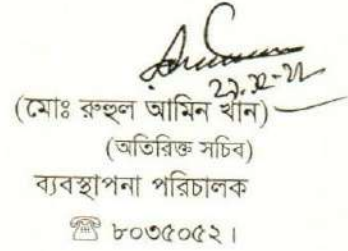 (মোঃ রুহুল আমিন খান)
(অতিরিক্ত সচিব)
ব্যবস্থাপনা পরিচালক
☎ ৮০৩৫০৫২।